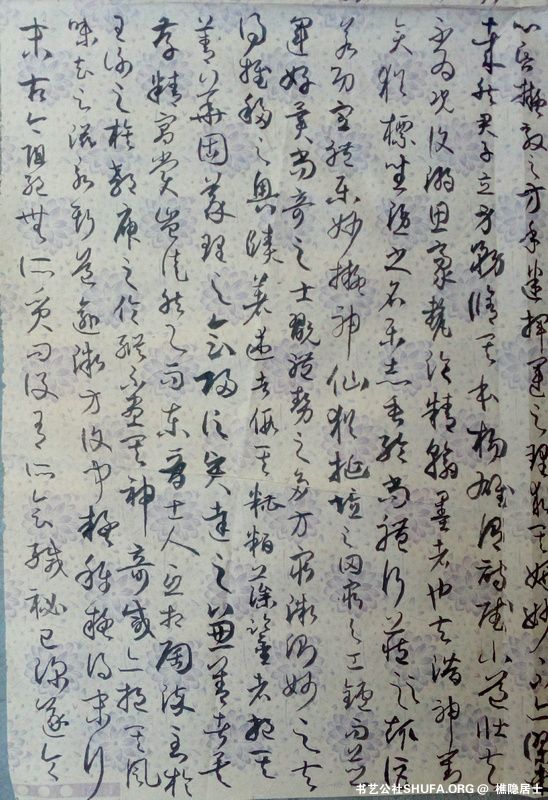 心昏擬效之方手迷揮運之理求其妍妙不亦謬
哉然君子立身務修其本揚雄謂詩賦小道壯夫
不為況復溺思豪氂淪精翰墨者也夫潛神對
奕猶標坐隱之名樂志垂綸尚體行藏之趣詎
若功宣禮樂妙擬神仙猶埏埴之罔窮與工鑪而並
運好異尚奇之士翫體勢之多方窮微測妙之夫
得推移之奧賾著述者假其糟粕藻鑒者挹其
菁華固義理之會歸信賢達之兼善者矣
存精寓賞豈徒然與而東晉士人互相陶染至於
王謝之族郗庾之倫縱不盡其神奇咸亦挹其風
味去之滋永斯道逾微方復聞疑稱疑得末行
末古今阻絕無所質問設有所會緘秘已深遂令
书艺公社SHUFA.ORG @ 樵隐居士